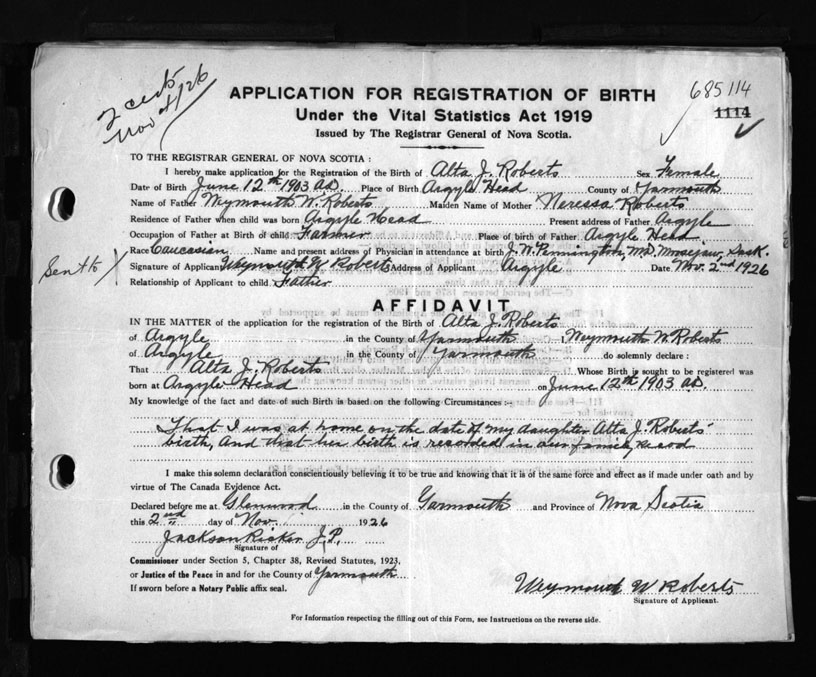 2 certs
Nov 4/26
APPLICATION FOR REGISTRATION OF BIRTH
685114
Under the Vital Statistics Act 1919
1114
Issued by The Registrar General of Nova Scotia.
TO THE REGISTRAR GENERAL OF NOVA SCOTIA :
I hereby make application for the Registration of the Birth of Alta J. Roberts Sex Female
Date of Birth June 12th 1903 A.D. Place of Birth Argyle Head County of Yarmouth
Name of Father Weymouth W. Roberts Maiden Name of Mother Neressa Roberts
Residence of Father when child was born Argyle Head Present address of Father Argyle
Occupation of Father at Birth of child Farmer Place of birth of Father Argyle Head
Race Caucasian Name and present address of Physician in attendance at birth J. W. Pennington, M.D. Moosejaw, Sask.
Sent to
Signature of Applicant Weymouth W Roberts Address of Applicant Argyle Date Nov. 2nd 1926
Relationship of Applicant to child Father
AFFIDAVIT
IN THE MATTER of the application for the registration of the Birth of Alta J. Roberts
of Argyle in the County of Yarmouth I, Weymouth W. Roberts
of Argyle in the County of Yarmouth do solemnly declare :
That Alta J. Roberts Whose Birth is sought to be registered was
born at Argyle Head on June 12th 1903 A.D.
My knowledge of the fact and date of such Birth is based on the following Circumstances :-
That I was at home on the date of my daughter Alta J. Roberts'
birth, and that her birth is recorded in our family record
I make this solemn declaration conscientiously believing it to be true and knowing that it is of the same force and effect as if made under oath and by
virtue of The Canada Evidence Act.
Declared before me at Glenwood in the County of Yarmouth and Province of Nova Scotia
this 2nd day of Nov. 1926
Jackson Ricker J.P.
Signature of
Commissioner under Section 5, Chapter 38, Revised Statutes, 1923,
or Justice of the Peace in and for the County of Yarmouth
If sworn before a Notary Public affix seal.
Weymouth W Roberts
Signature of Applicant.
For Information respecting the filling out of this Form, see Instructions on the reverse side.